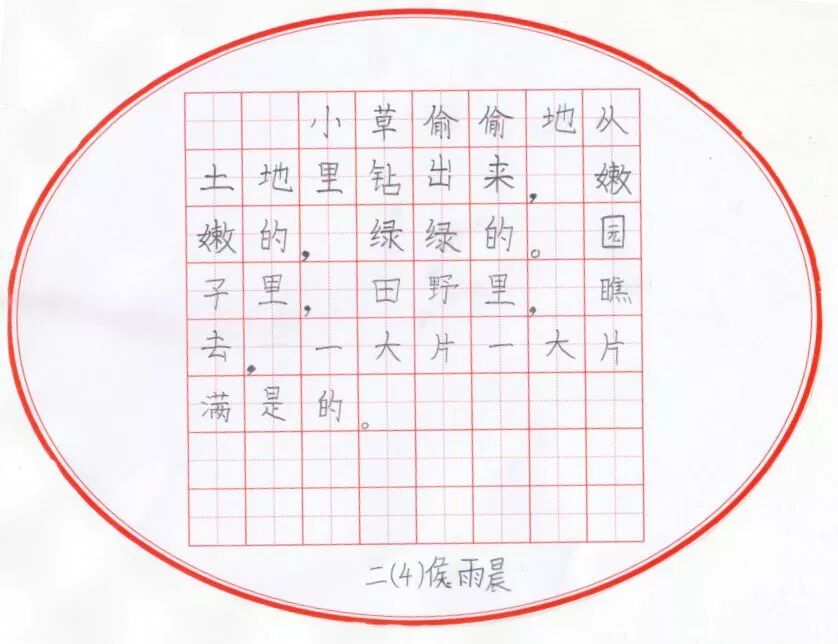 小草偷偷地从
土地里钻出来，嫩
嫩的，绿绿的。园
子里，田野里，瞧
去，一大片一大片
满是的。
二(4)侯雨晨